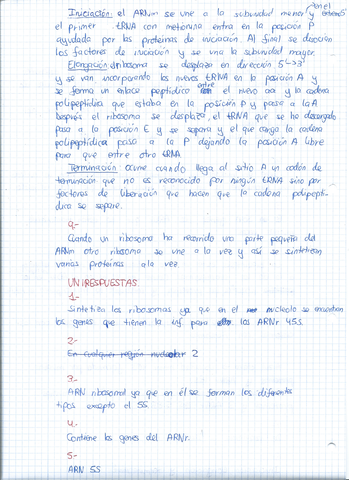 Iniciación: el ARNm se une a la subunidad menor y en el
el primer tRNA con metionina entra en la posición P
ayudado por las proteinas de iniciación. Al final se desocian
los factores de iniciación y se une la subunidad mayor.
Elongación: ribosoma se desplaza en dirección 5'->3'
y se van incorporando los nuevos tRNA en la posición A y
se forma un enlace peptídico entre el nuevo aa y la cadena
polipeptídica que estaba en la posición P y pasa a la A
Después el ribosoma se desplaza, el tRNA que se ha descargado
pasa a la posición E y se separa y el que carga la cadena
polipeptídica pasa a la P dejando la posición A libre
para que entre otro tRNA.
Terminación: ocurre cuando llega al sitio A un codón de
terminación que no es reconocido por ningún tRNA sino por
factores de liberación que hacen que la cadena polipeptí-
dica se separe.
9.-
Cuando un ribosoma ha recorrido una parte pequeña del
ARNm otro ribosoma se une a la vez y así se sintetizan
varias proteinas a la vez.
UNIRESPUESTAS
1.-
Sintetiza los ribosomas ya que en el nucleolo se encuentran
los genes que tienen la inf para los ARNr 45S.
2.-
En cualquier región nuclear 2
3.-
ARN ribosomal ya que en él se forman los diferentes
tipos excepto el 5S.
4.-
Contiene los genes del ARNr.
5.-
ARN 5S